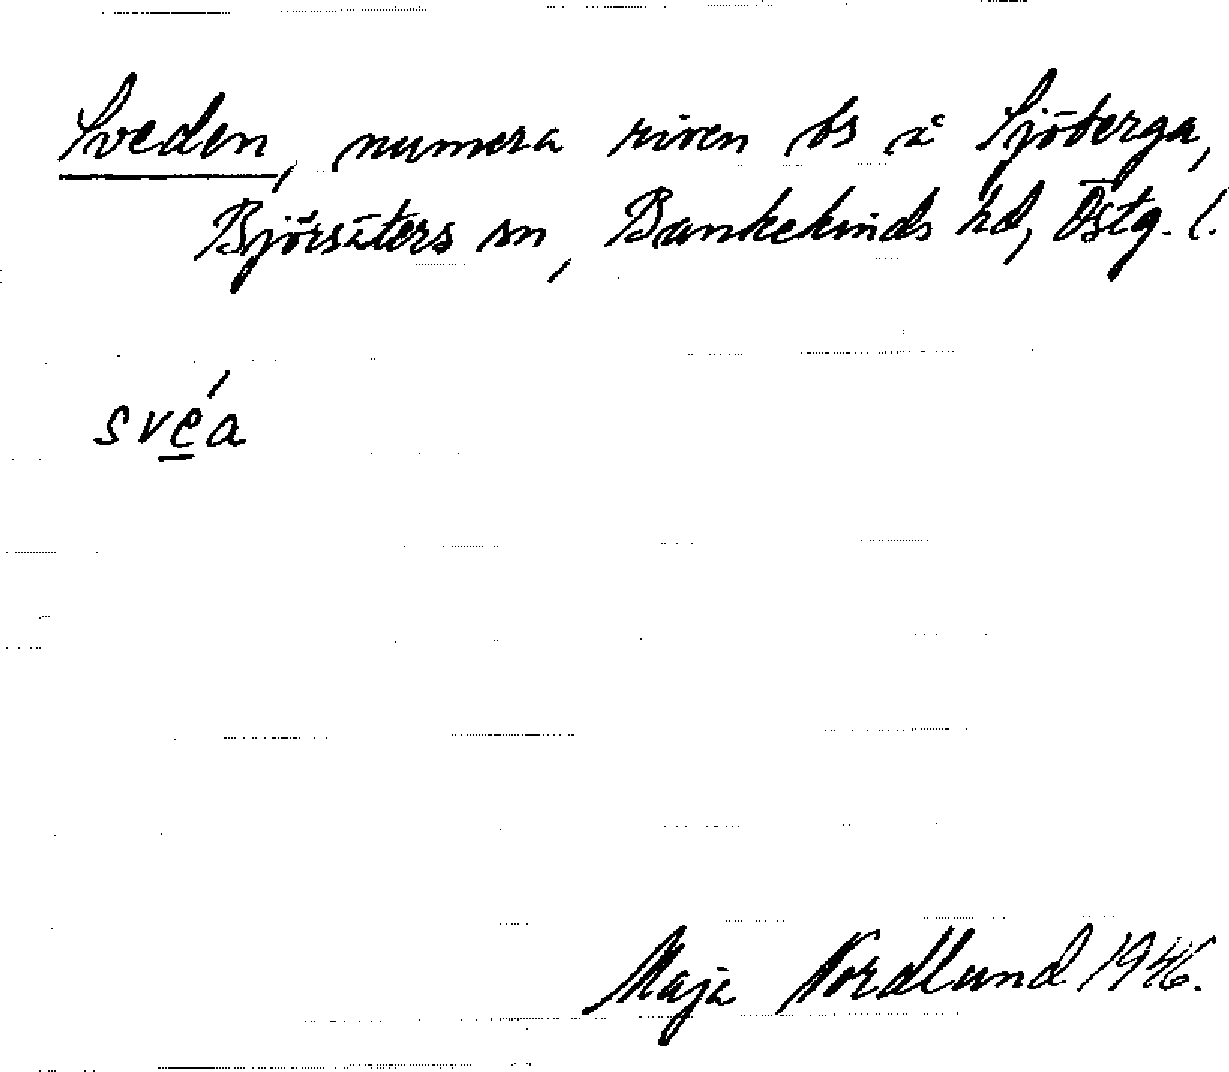 Sveden, numera riven bs å Sjöberga,
Björsäters sn, Bankekinds hd, Östg. l.
svéa
Maja Nordlund 1946.